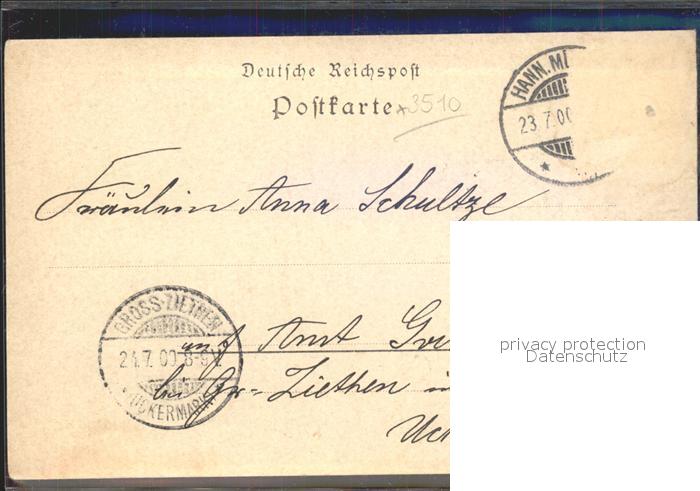 Deutsche Reichspost
Postkarte
3510
HANN. MÜ
23.7.00
Fräulein Anna Schultze
GROSS-ZIETHEN
24.7.00 8-9V.
UCKERMARK
auf Amt
bei Gr. Ziethen
privacy protection
Datenschutz